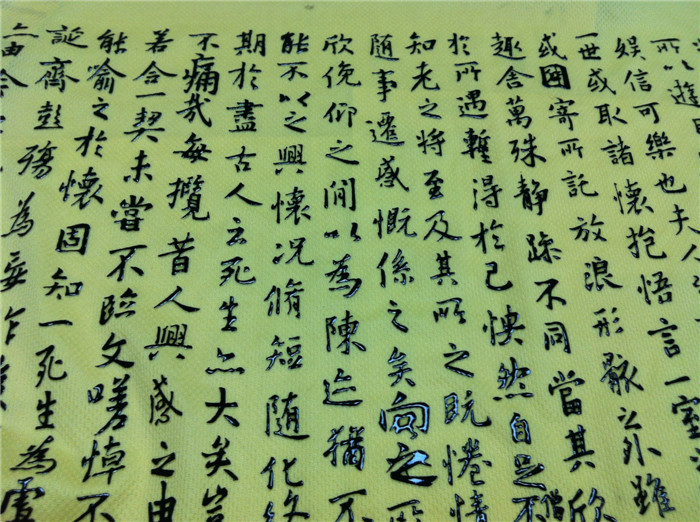 所以遊
娛信可樂也夫人
一世或取諸懷抱悟言一室
或因寄所託放浪形骸之外雖
趣舍萬殊靜躁不同當其欣
於所遇蹔得於己怏然自足不
僧
知老之將至及其所之既惓情
隨事遷感慨係之矣向之所
欣俛仰之閒以為陳迹猶不
能不以之興懷況脩短隨化終
期於盡古人云死生亦大矣豈
不痛哉每攬昔人興感之由
若合一契未嘗不臨文嗟悼不
能喻之於懷固知一死生為虛
誕齊彭殤為妄作後
由今